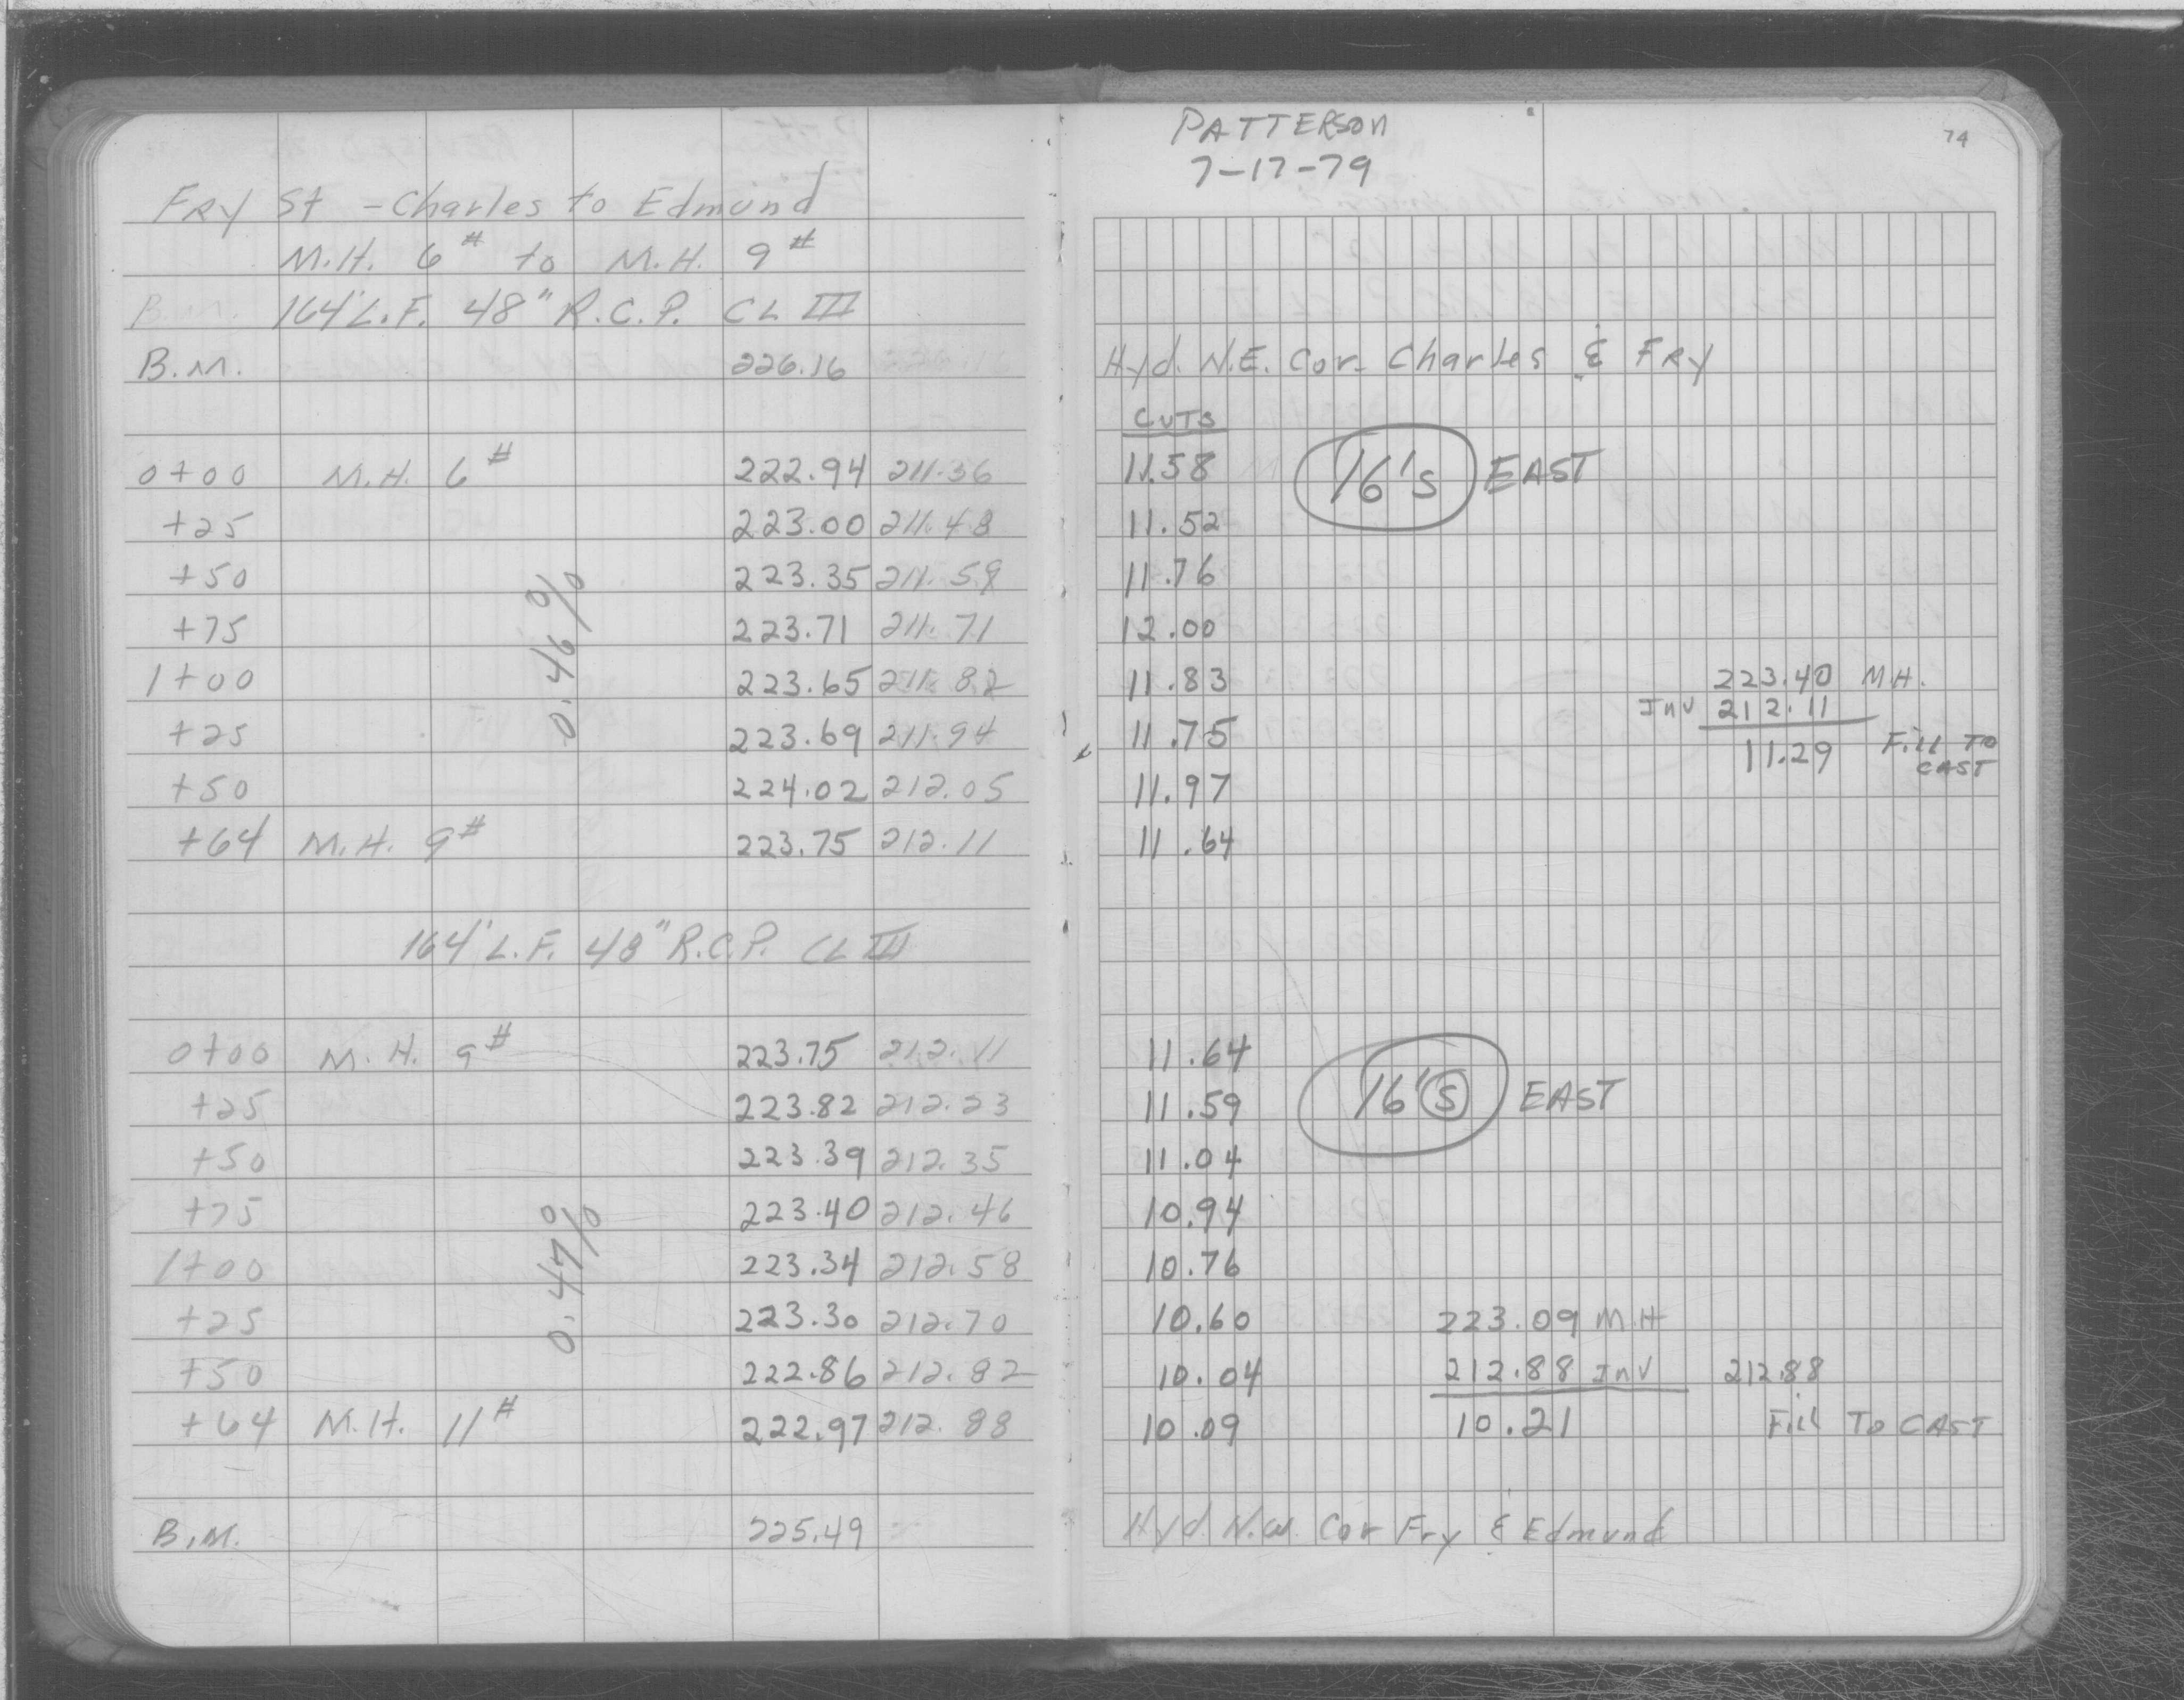 FRY St - Charles to Edmund
M.H. 6# to M.H. 9#
B.M. 164' L.F. 48" R.C.P. CL III
B.M. 226.16
0+00 M.H. 6# 222.94 211.36
+25 223.00 211.48
+50 223.35 211.59
+75 223.71 211.71
1+00 223.65 211.82
+25 223.69 211.94
+50 224.02 212.05
+64 M.H. 9# 223.75 212.11
0.46%
164' L.F. 48" R.C.P. CL III
0+00 M.H. 9# 223.75 212.11
+25 223.82 212.23
+50 223.39 212.35
+75 223.40 212.46
1+00 223.34 212.58
+25 223.30 212.70
+50 222.86 212.82
+64 M.H. 11# 222.97 212.88
0.47%
B.M. 225.49
PATTERSON
7-17-79
74
Hyd. N.E. Cor. Charles & FRY
CUTS
11.58 16's EAST
11.52
11.76
12.00
11.83 223.40 M.H.
INV 212.11
11.75 11.29 Fill TO CAST
11.97
11.64
11.64
11.59 16's EAST
11.04
10.94
10.76
10.60 223.09 M.H
10.04 212.88 INV 212.88
10.09 10.21 Fill TO CAST
Hyd. N.W. Cor Fry & Edmund